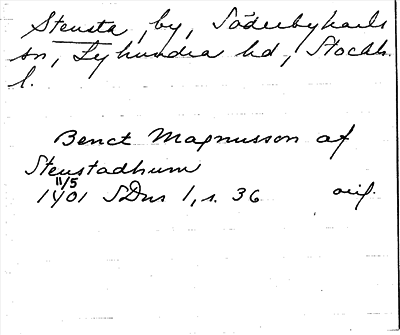 Stensta, by, Söderbykarls
sn, Lyhundra hd, Stockh.
l.
Benct Magnusson af
Stenstadhum
11/5
1401 SDns 1, s. 36 orig.